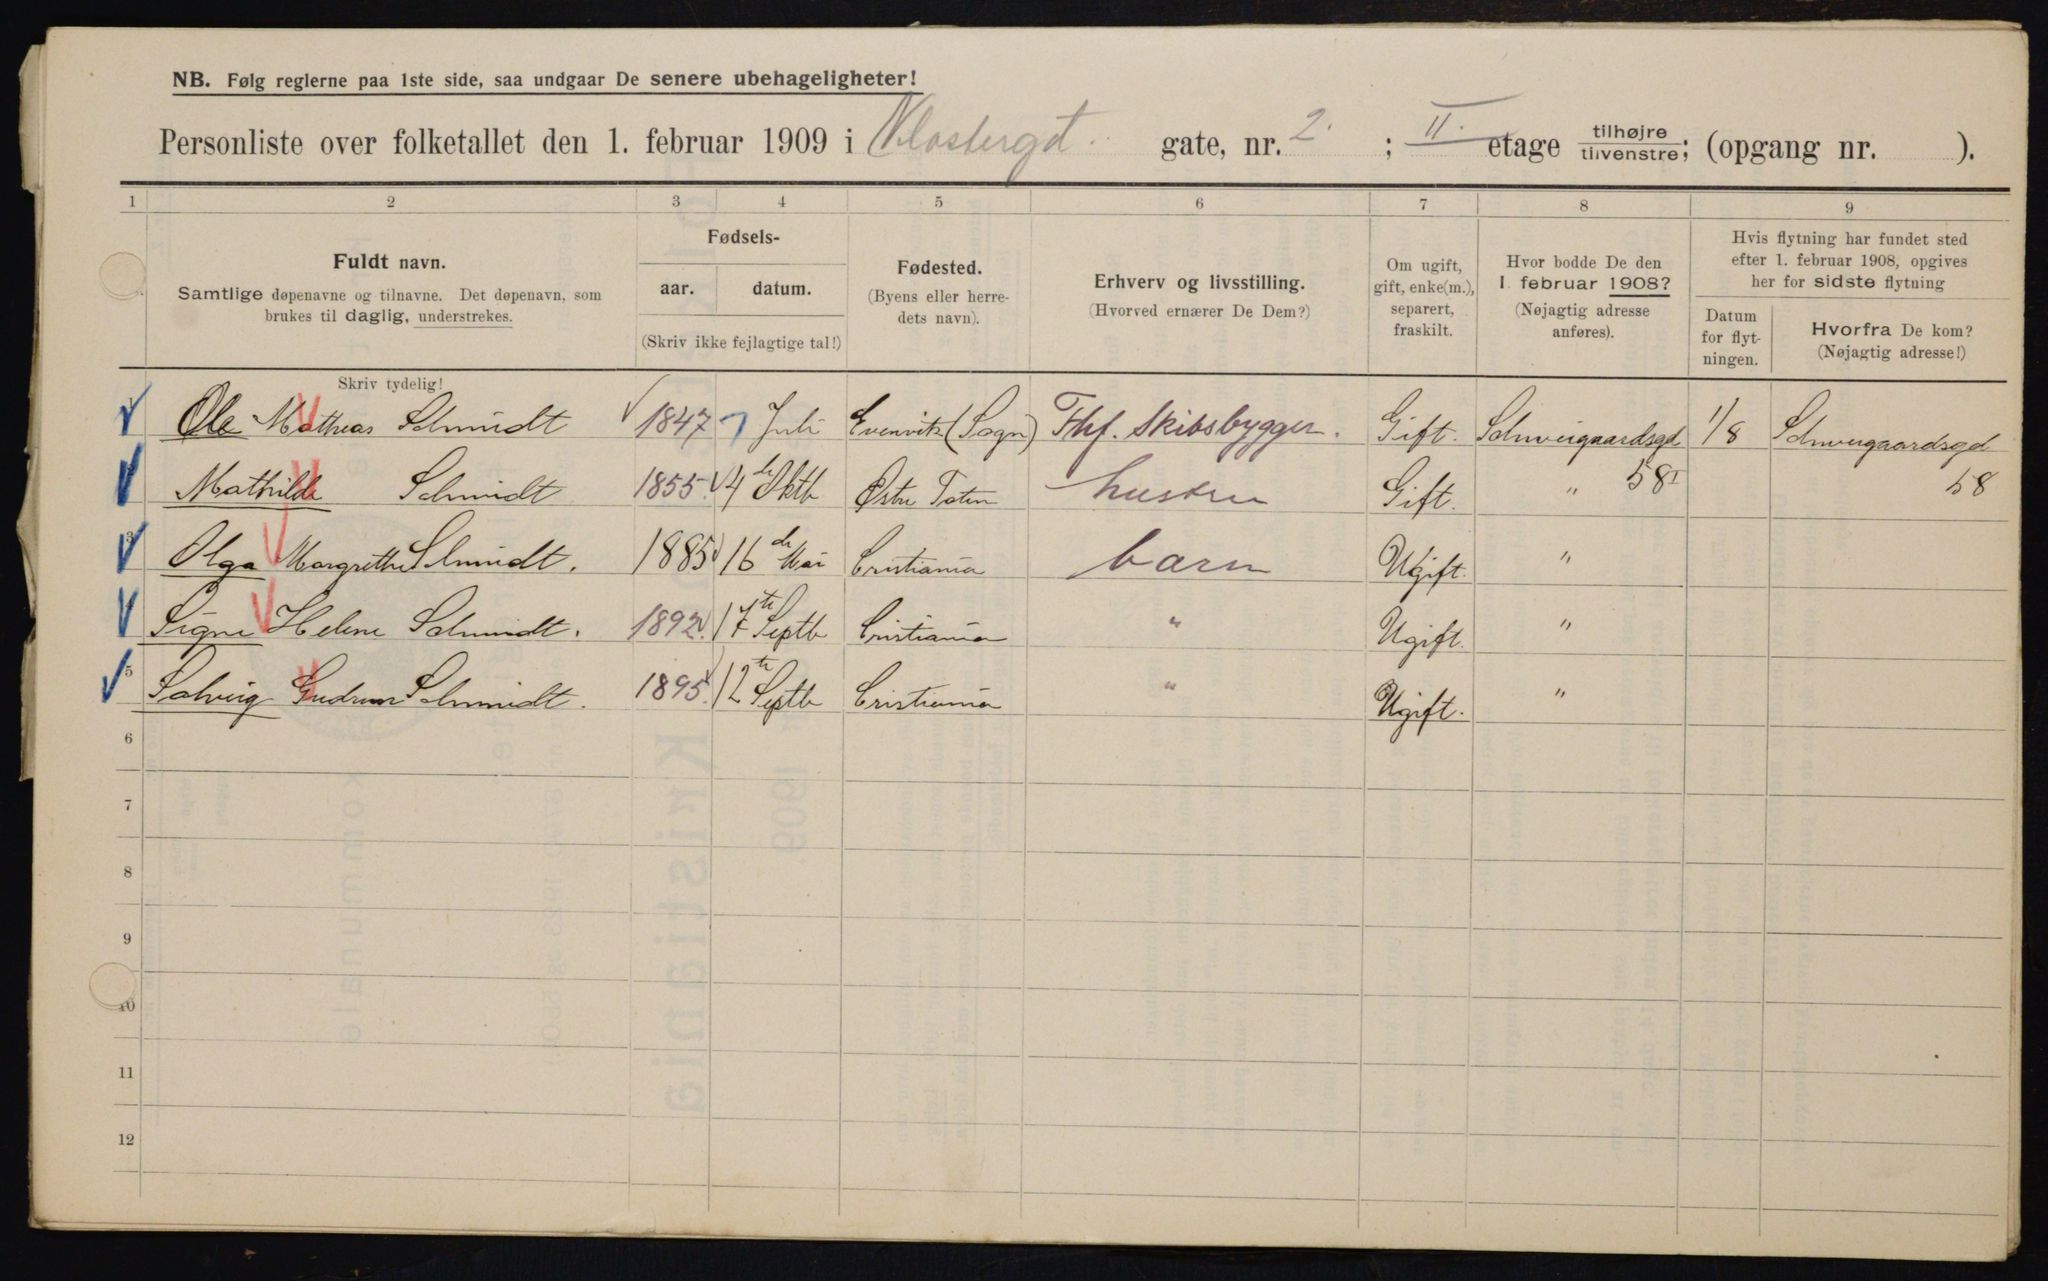 NB. Følg reglerne paa 1ste side, saa undgaar De senere ubehageligheter!
Personliste over folketallet den 1. februar 1909 i Klostergt. gate, nr. 2. ; II. etage tilhøjre tilvenstre; (opgang nr. ).
1 2 3 4 5 6 7 8 9
Fuldt navn.
Samtlige døpenavne og tilnavne. Det døpenavn, som
brukes til daglig, understrekes.
Skriv tydelig!
Fødsels-
aar. datum.
(Skriv ikke fejlagtige tal!)
Fødested.
(Byens eller herre-
dets navn).
Erhverv og livsstilling.
(Hvorved ernærer De Dem?)
Om ugift,
gift, enke(m.),
separert,
fraskilt.
Hvor bodde De den
1. februar 1908?
(Nøjagtig adresse
anføres).
Hvis flytning har fundet sted
efter 1. februar 1908, opgives
her for sidste flytning
Datum
for flyt-
ningen.
Hvorfra De kom?
(Nøjagtig adresse!)
Ole Mathias Schmidt 1847 7 Juli Evenvik (Sogn) Fhf. Skibsbygger. Gift. Schweigaardsgd 1/8 Schweigaardsgd
Mathilde Schmidt 1855. 4 de Oktb Østre Toten hustru Gift. " 58 I 58
3 Olga Margrethe Schmidt. 1885 16 de Mai Cristiania barn Ugift. "
Signe Helene Schmidt. 1892. 17 te Septb Cristiania " Ugift. "
5 Solveig Gudrun Schmidt. 1895. 12 te Septb Cristiania " Ugift. "
6
7
8
9
10
11
12